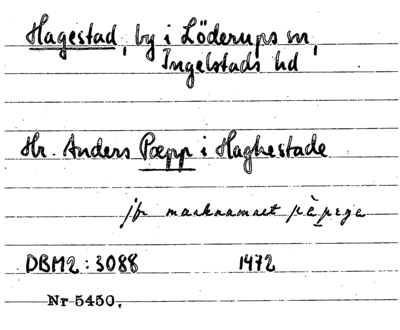 Hagestad, by i Löderups sn,
Ingelstads hd
Hr. Anders Pæpp i Haghestade
jfr marknamnet
DBM2: 3088 1472
Nr 5450.